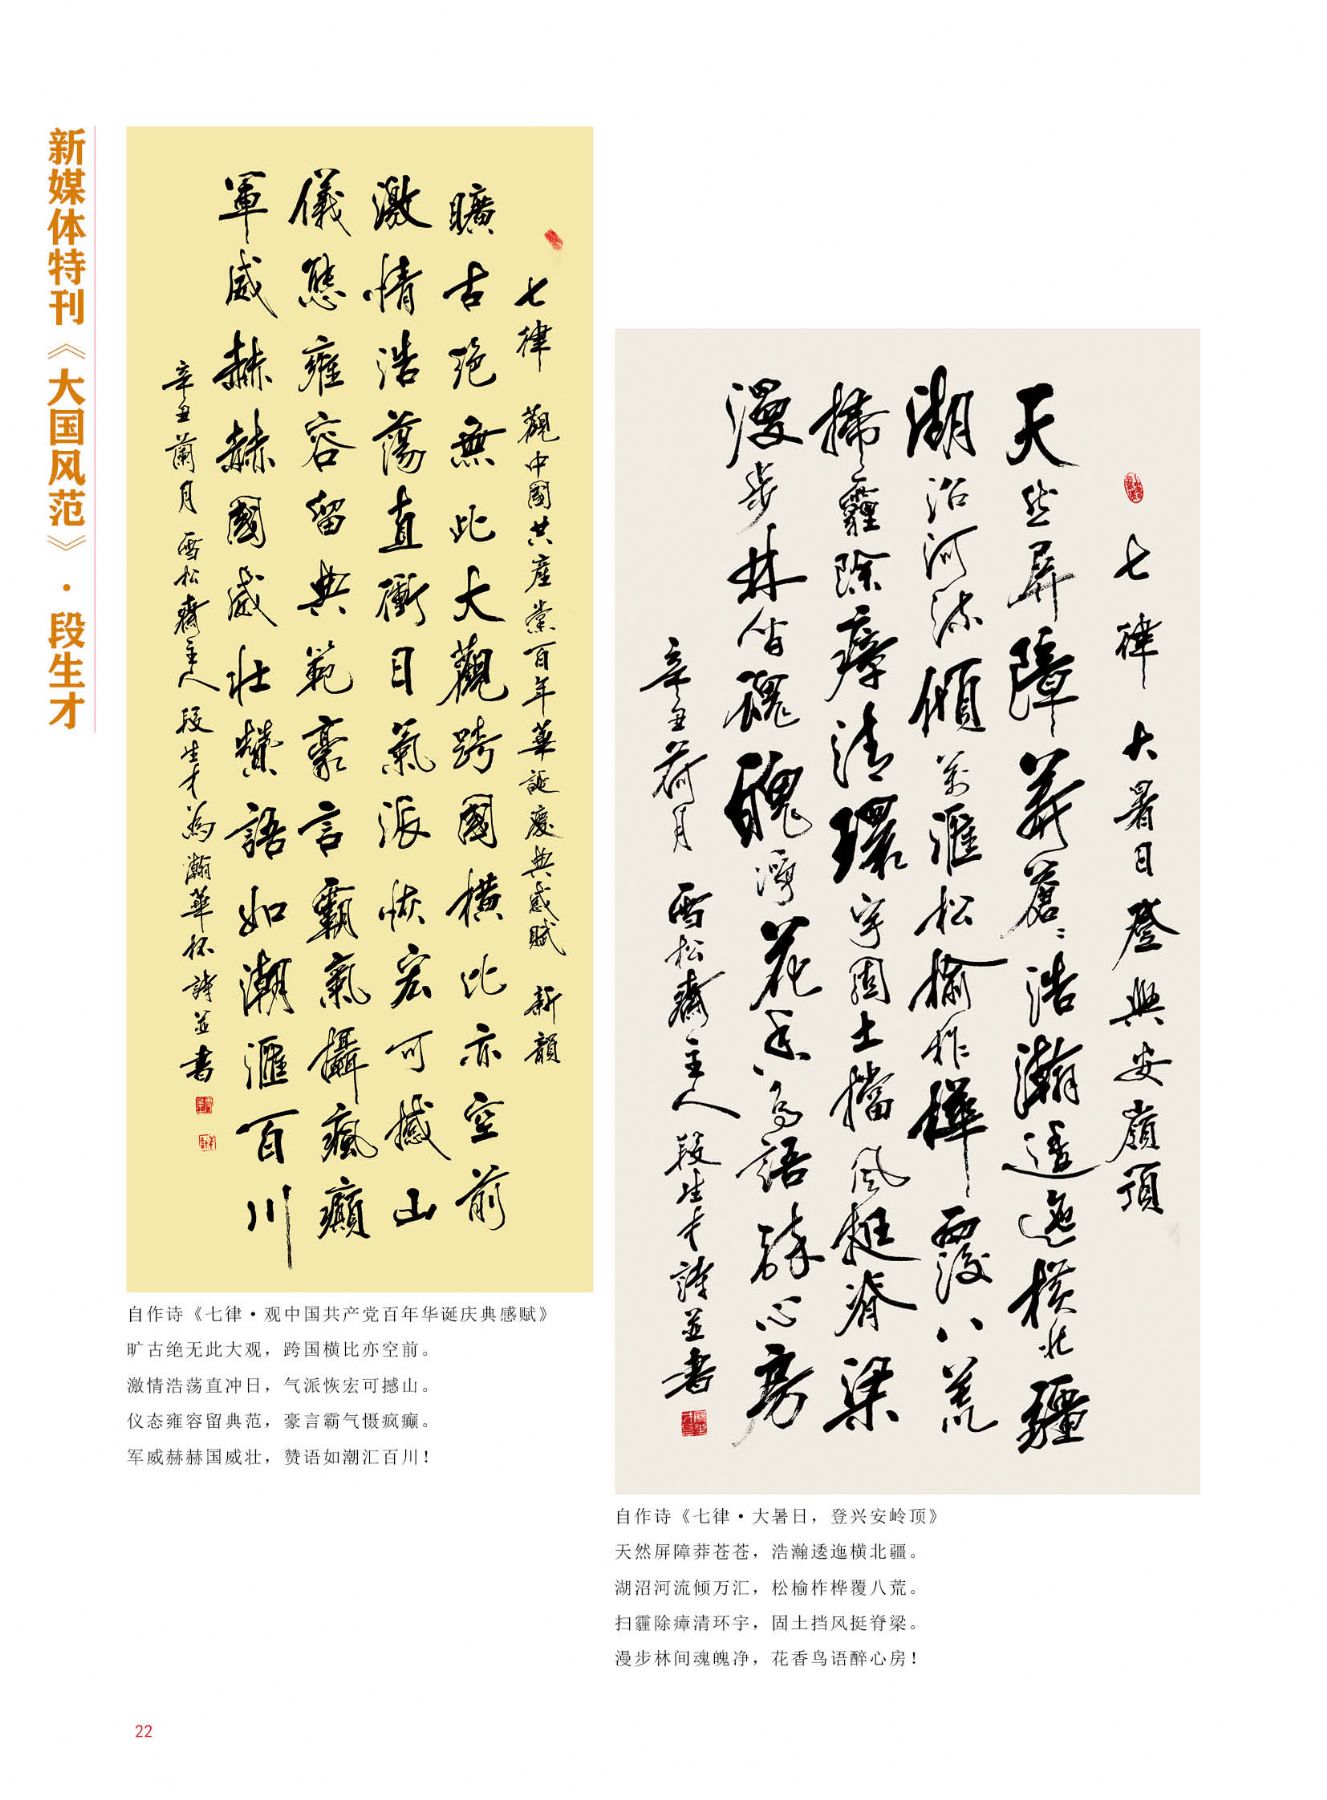 新媒体特刊《大国风范》·段生才
七律 觀中國共産党百年華誕慶典感賦 新韻
曠古绝無此大觀跨國横比亦空前
激情浩蕩直衝日氣派恢宏可撼山
儀態雍容留典範豪言霸氣攝瘋癲
軍威赫赫國威壮贊語如潮匯百川
辛丑蘭月 雪松齋主人 段生才為瀚華杯詩並書
自作诗《七律·观中国共产党百年华诞庆典感赋》
旷古绝无此大观，跨国横比亦空前。
激情浩荡直冲日，气派恢宏可撼山。
仪态雍容留典范，豪言霸气慑疯癫。
军威赫赫国威壮，赞语如潮汇百川！
七律 大暑日登興安嶺頂
天然屏障莽蒼蒼浩瀚逶迤横北疆
湖沼河流傾萬滙松榆柞樺覆八荒
掃霾除瘴清環宇固土擋風挺脊梁
漫步林间魂魄净花香鸟語醉心房
辛丑荷月 雪松齋主人 段生才詩並書
自作诗《七律·大暑日，登兴安岭顶》
天然屏障莽苍苍，浩瀚逶迤横北疆。
湖沼河流倾万汇，松榆柞桦覆八荒。
扫霾除瘴清环宇，固土挡风挺脊梁。
漫步林间魂魄净，花香鸟语醉心房！
22